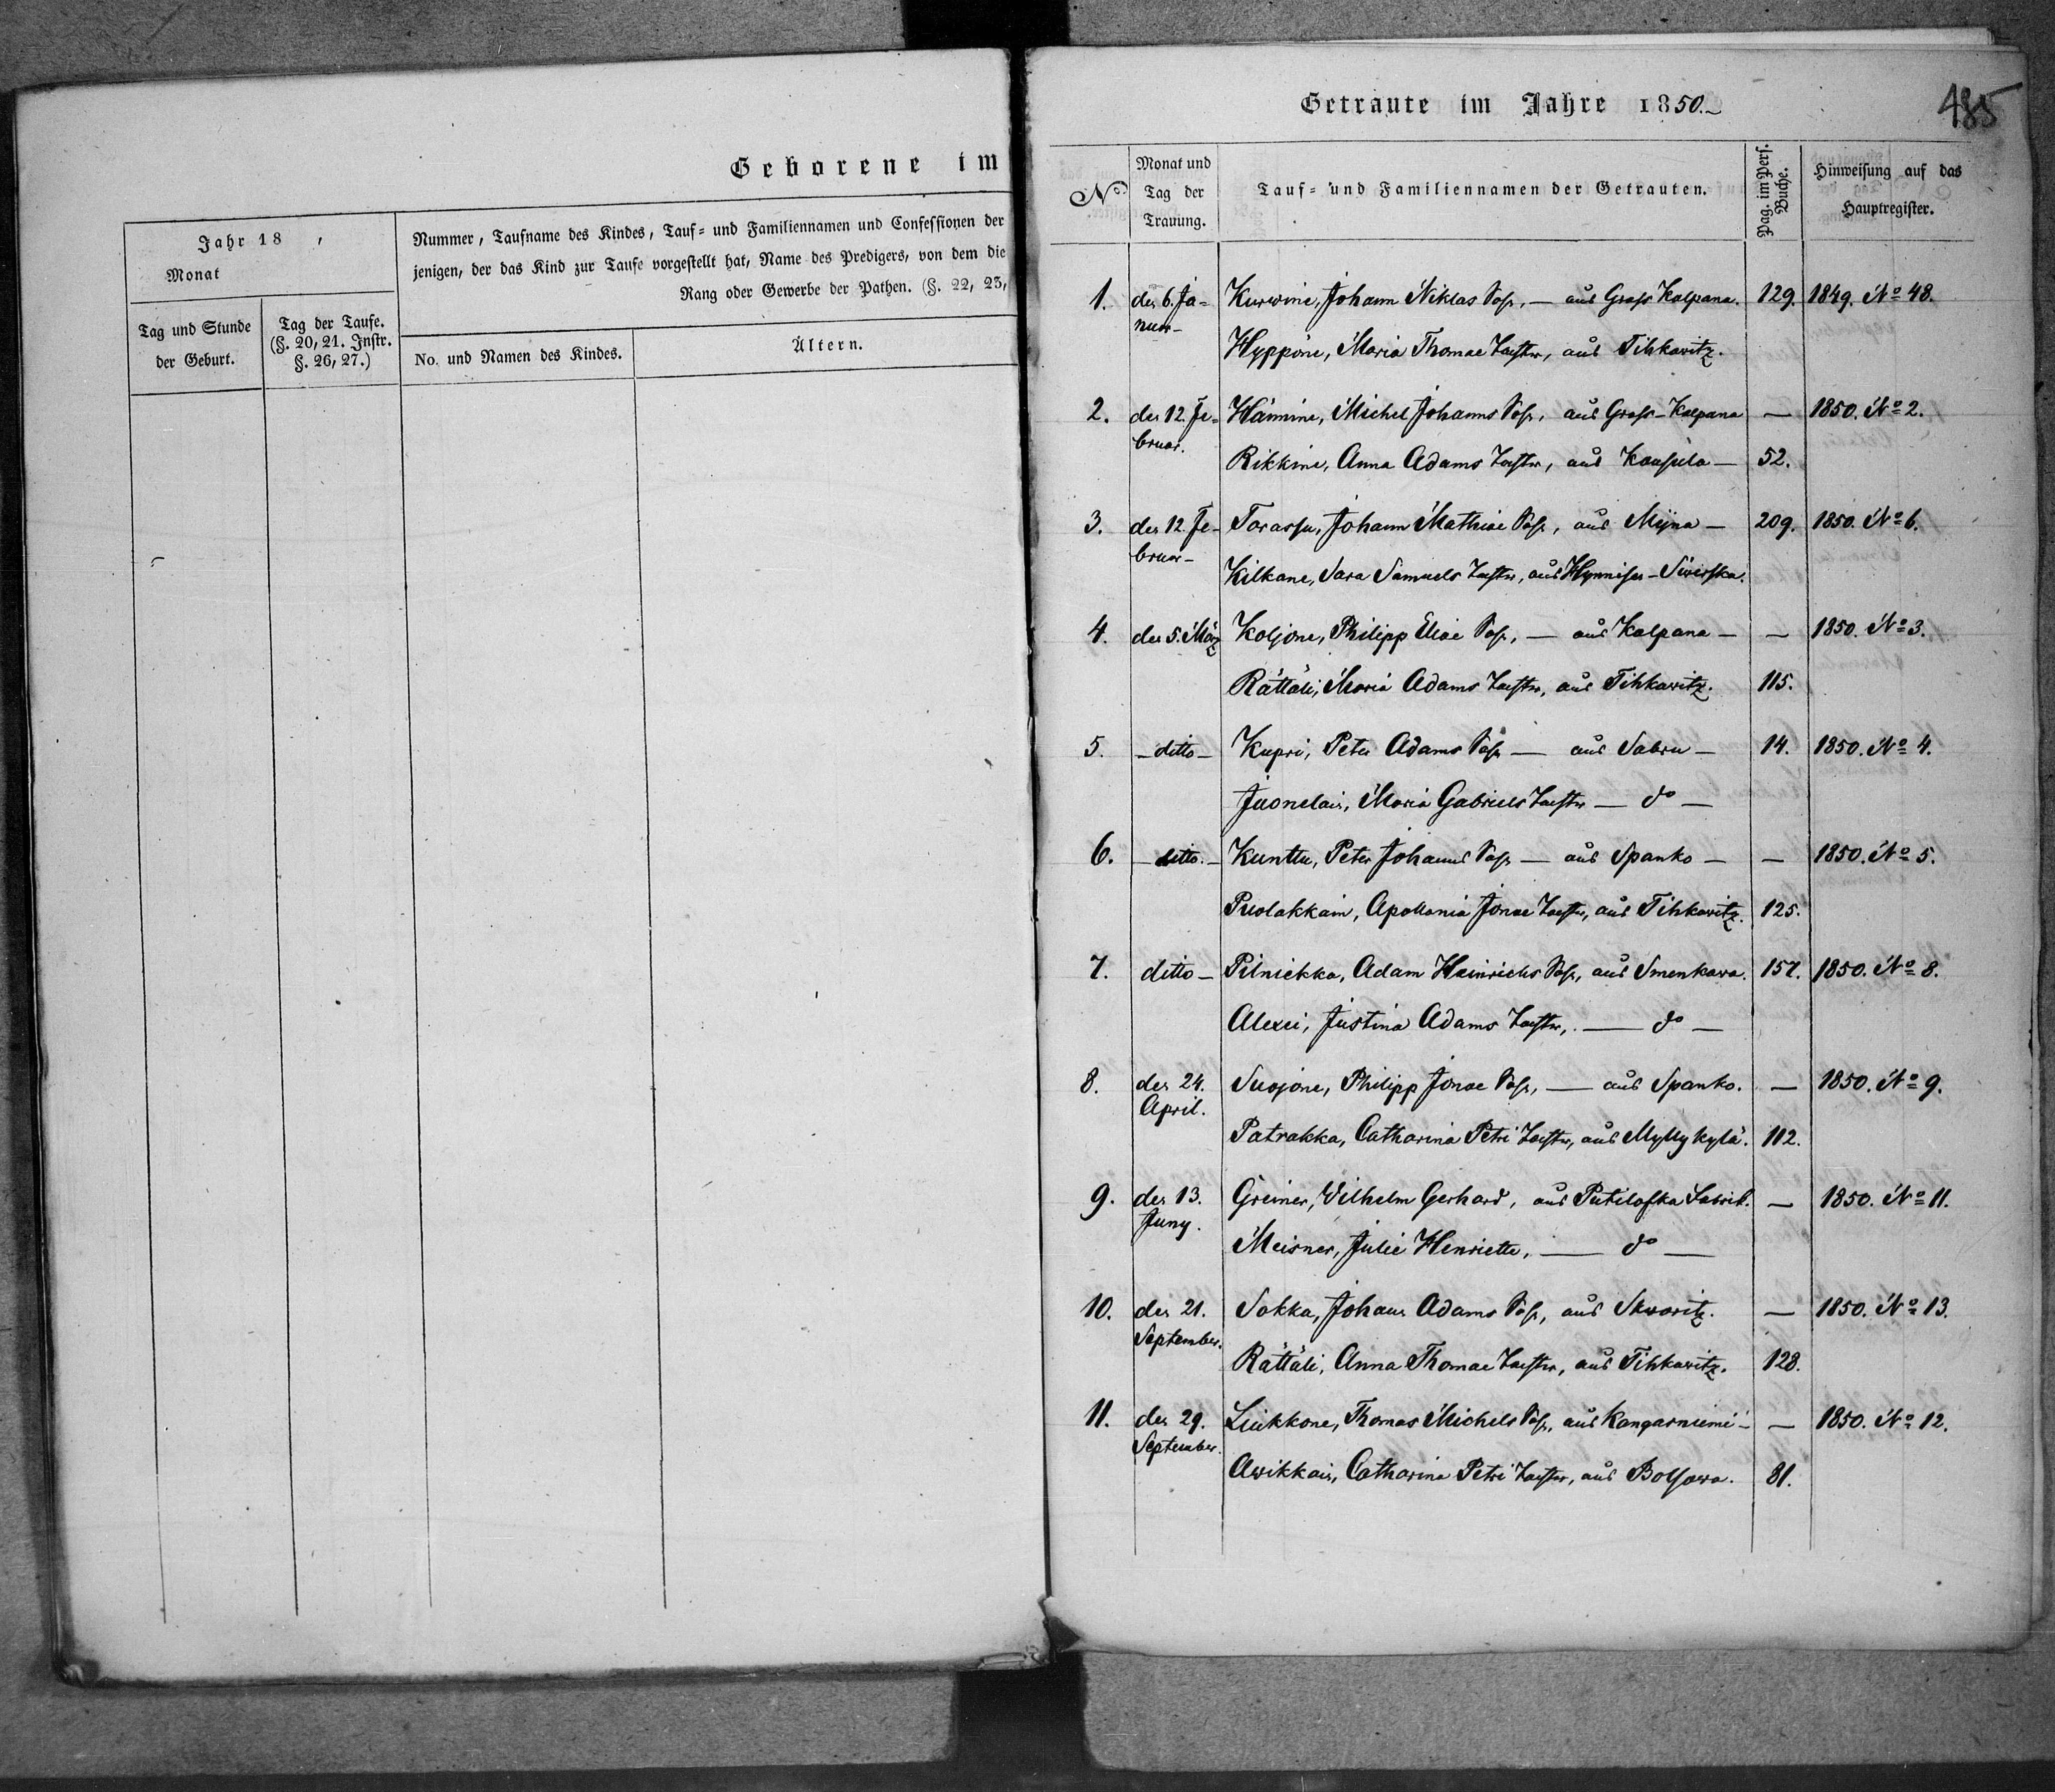 Geborene im
Jahr 18 ,
Monat
Nummer, Taufname des Kindes, Tauf= und Familiennamen und Confessionen der
jenigen, der das Kind zur Taufe vorgestellt hat, Name des Predigers, von dem die
Rang oder Gewerbe der Pathen. (§. 22, 23,
Tag und Stunde
der Geburt.
Tag der Taufe.
(§. 20, 21. Instr.
§. 26, 27.)
No. und Namen des Kindes.
Ältern.
485
Getraute im Jahre 1850.
No
Monat und
Tag der
Trauung.
Tauf= und Familiennamen der Getrauten.
Pag. im Pers.
Buche.
Hinweisung auf das
Hauptregister.
1. den 6. Ja= Kurwine, Johann Niklas Sohn, — aus Gross Kolpana. 129. 1849. No 48.
nuar— Hyppöne, Maria Thomae Tochter, aus Tihkowitz.
2. den 12. Fe= Hämine, Michel Johanns Sohn, aus Gross-Kolpana — 1850. No 2.
bruar. Rikkine, Anna Adams Tochter, aus — 52.
3. den 12. Fe= Torassu, Johann Mathiae Sohn, aus Mÿna — 209. 1850. No 6.
bruar— Kilkane, Sara Samuels Tochter, aus Hynnisen-Siwerska.
4. den 5. März Koljone, Philipp Eliae Sohn, — aus Kolpana — — 1850. No 3.
Rättäli, Maria Adams Tochter, aus Tihkowitz. 115.
5. — ditto — Kupri, Peter Adams Sohn — aus Sabru — 14. 1850. No 4.
Juonelain, Maria Gabriels Tochter — do —
6. — ditto. — Kunttu, Peter Johanns Sohn — aus Spanko — — 1850. No 5.
Puolakkain, Apollonia Jonae Tochter, aus Tihkowitz. 125.
7. ditto — Pilniekka, Adam Heinrichs Sohn, aus Smenkowa. 157. 1850. No 8.
Alexei, Justina Adams Tochter, — do —
8. den 24. Suojone, Philipp Jonae Sohn, — aus Spanko. — 1850. No 9.
April. Patrakka, Catharina Petri Tochter, aus Myllykylä. 112.
9. den 13. Greiner, Wilhelm Gerhard, aus Putilofka Fabrik. — 1850. No 11.
Juny. Meisner, Julie Henriette, — do —
10. den 21. Sokka, Johann Adams Sohn, aus Skworitz. — 1850. No 13.
September. Rättäli, Anna Thomae Tochter, aus Tihkowitz. 128.
11. den 29. Liukkone, Thomas Michels Sohn, aus Kangasniemi — — 1850. No 12.
September. Awikkain, Catharina Petri Tochter, aus 81.